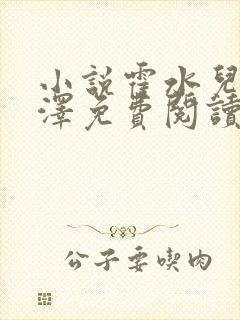 小說霍水兒
澤免費閱讀
公子要喫肉